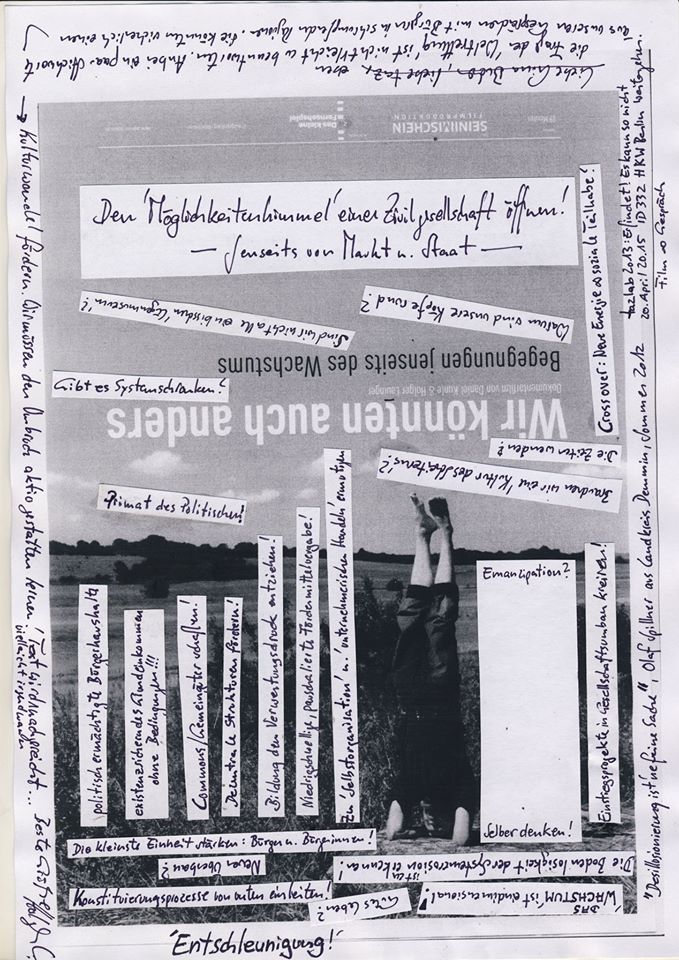 Liebe taz,
die Frage der 'Weltrettung' ist nicht leicht zu beantworten. Anbei ein paar Stichworte
aus unseren Gesprächen mit Bürgern in schrumpfenden Regionen. die könnten sicherlich einen
→ Kulturwandel fördern. Wir müssen den Umbruch aktiv gestalten lernen! Text wird nachgereicht...
vielleicht irgendwann
Beste Grüße
SEIN|IM|SCHEIN
FILMPRODUKTION
Das kleine
Fernsehspiel
Den 'Möglichkeitenhimmel' einer Zivilgesellschaft öffnen!
— Jenseits von Markt u. Staat —
Sind wir nicht alle ein bisschen 'Egonmuseum'!?
Warum sind unsere Köpfe rund?
Begegnungen jenseits des Wachstums
Dokumentarfilm von Daniel Kunle & Holger Lauinger
Wir könnten auch anders
Gibt es Systemschranken?
Crossover: Neue Energie & soziale Teilhabe!
Die Zeiten wenden?
Brauchen wir eine 'Kultur des Scheiterns'?
Primat des Politischen!
politisch ermächtigte Bürgerhaushalte
existenzsicherndes Grundeinkommen
ohne Bedingungen!!!
Commons/Gemeingüter schaffen!
Dezentrale Strukturen fördern!
Bildung dem Verwertungsdruck entziehen!
Niedrigschwellige, pauschalierte Fördermittelvergabe!
Zu 'Selbstorganisation' u. 'unternehmerischen Handeln' ermutigen
Emanzipation?
Selber denken!
Einstiegsprojekte in Gesellschaftsumbau kreieren!
Die kleinste Einheit stärken: Bürger u. Bürgerinnen!
Neuer Überbau?
Die Bodenlosigkeit der Systemerosion erkennen!
Konstituierungsprozesse von unten einleiten!
Gutes Leben?
DAS
WACHSTUM ist eindimensional!
'Entschleunigung!'
tazlab 2013: Erfindet! Es kann so nicht
20. April 2015 ID332 HKW Berlin weitergehen.
Film & Gespräch
"Desillusionierung ist 'ne feine Sache", Olaf Spillner aus Landkreis Demmin, Sommer 2012